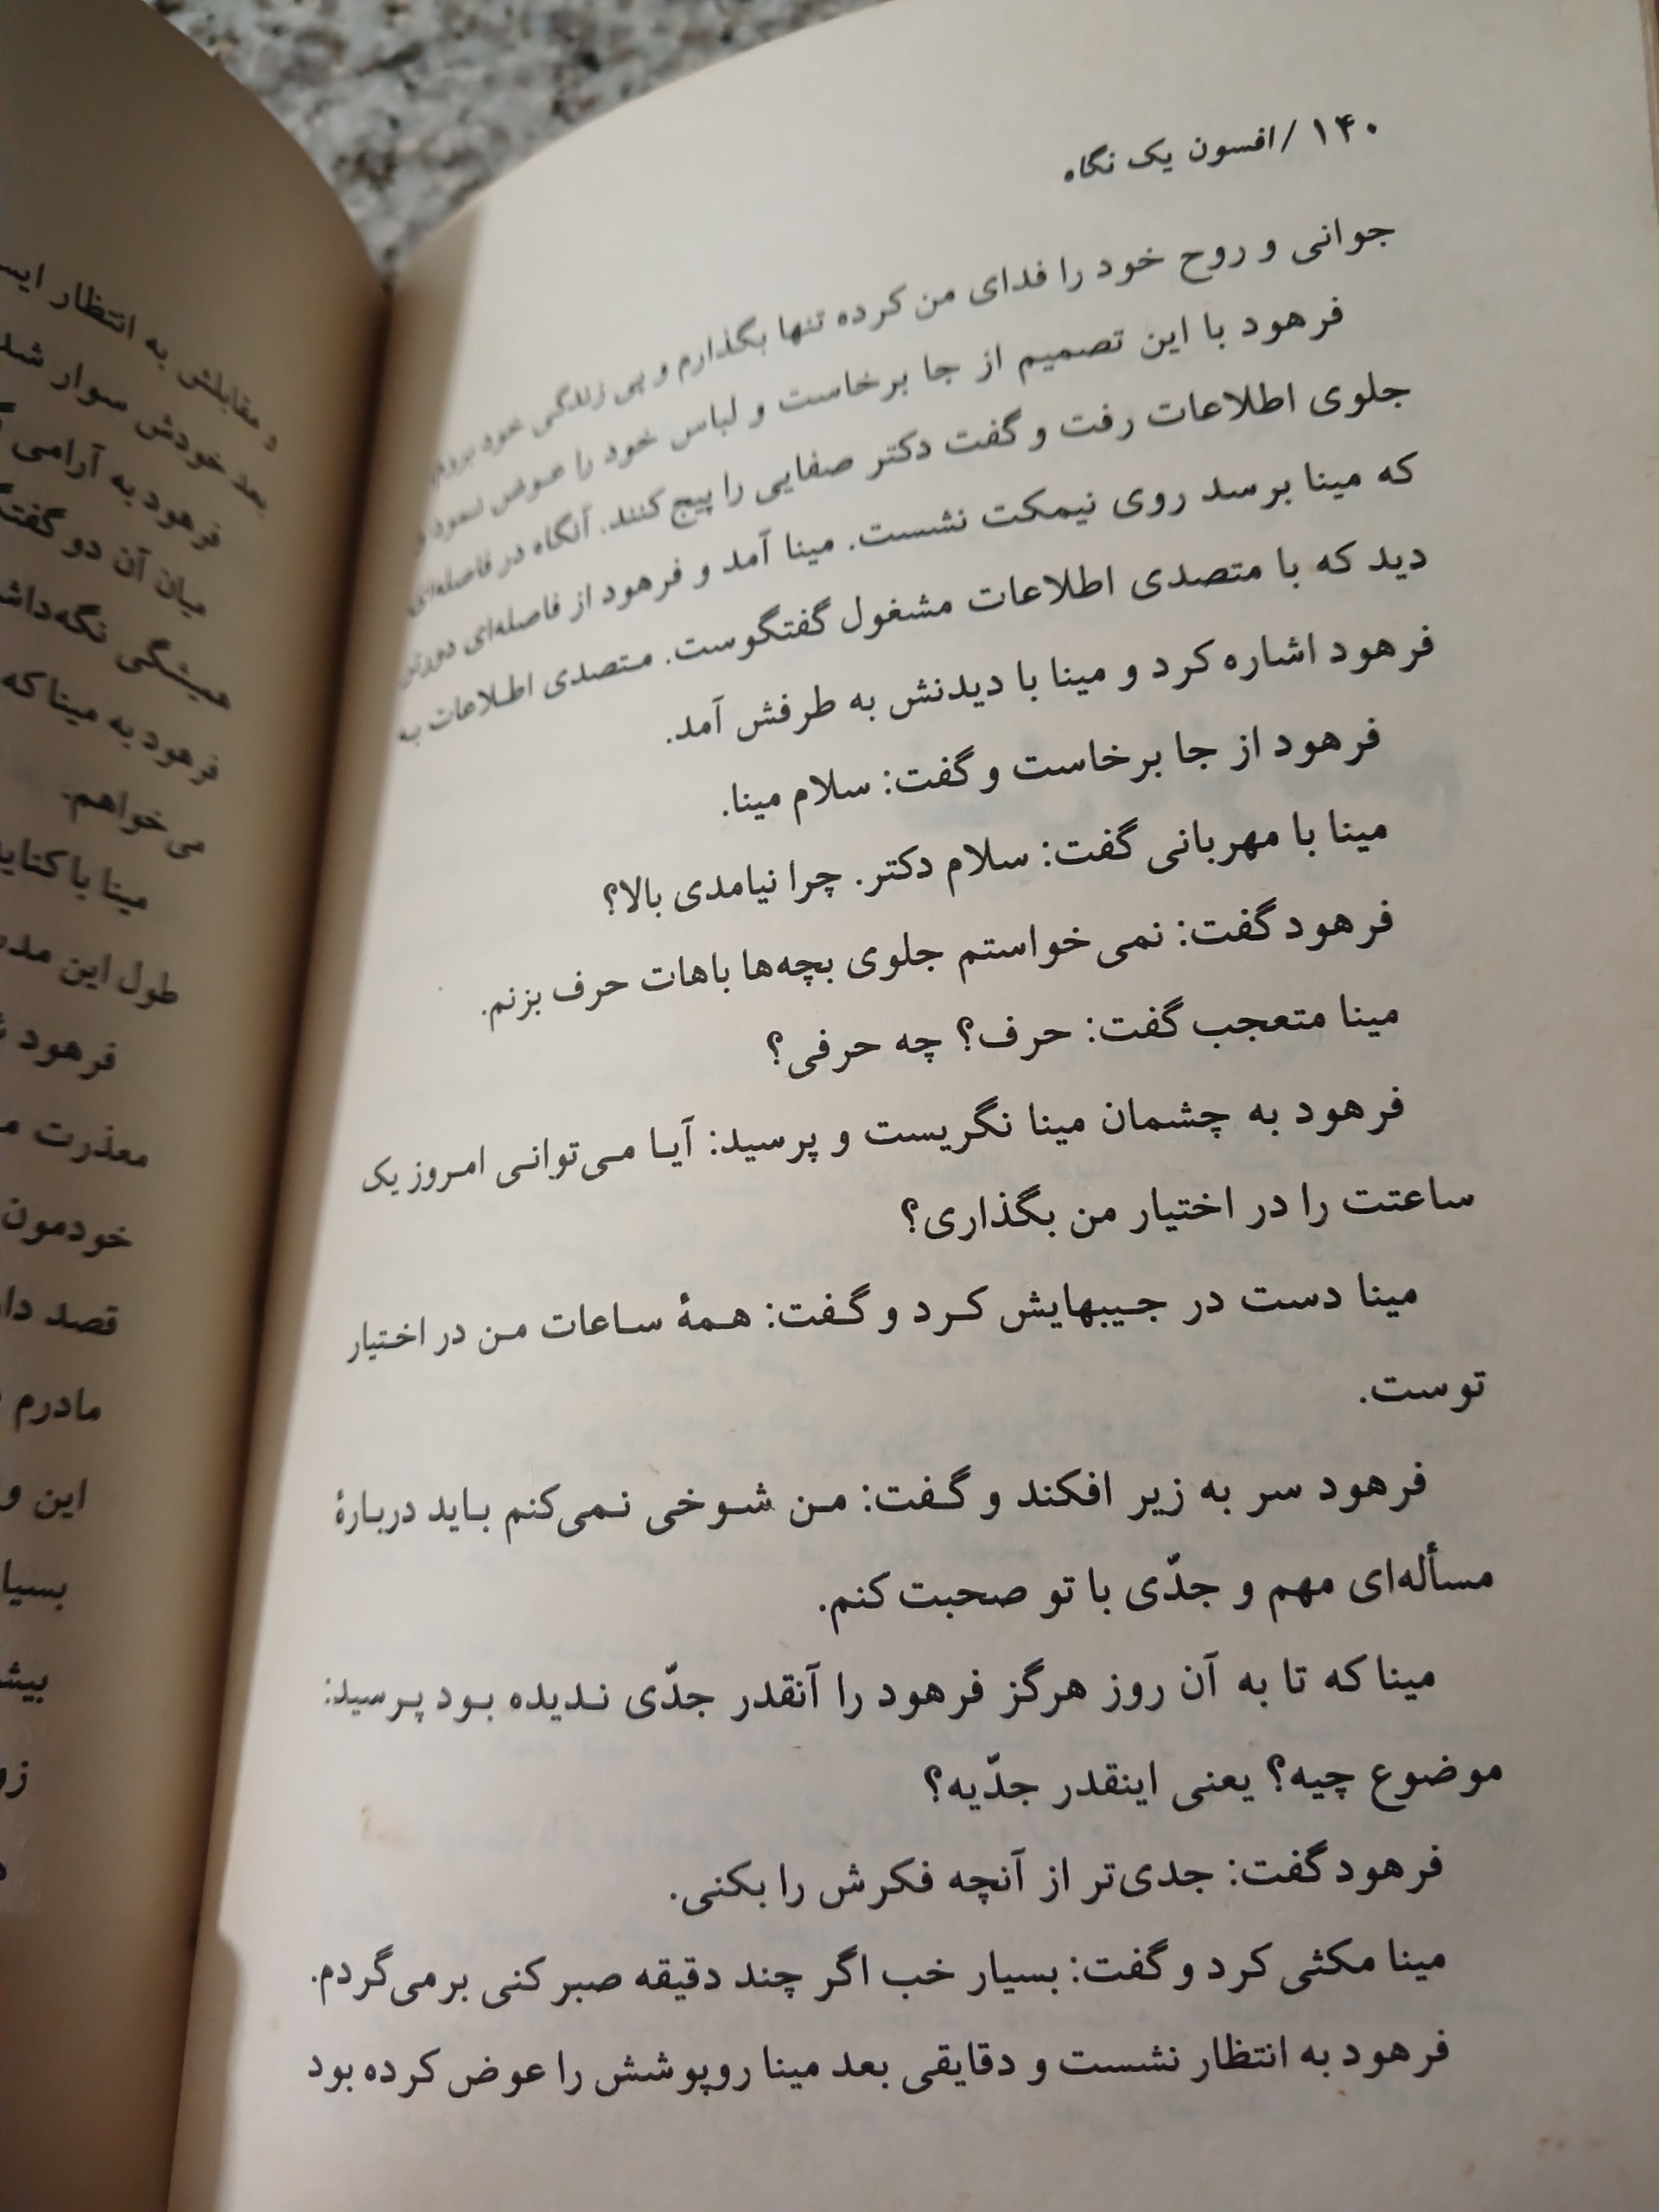 ۱۴۰ / افسون یک نگاه
جوانی و روح خود را فدای من کرده تنها بگذارم و پی زندگی خود بروم.
فرهود با این تصمیم از جا برخاست و لباس خود را عوض نمود و
جلوی اطلاعات رفت و گفت دکتر صفایی را پیج کنند. آنگاه در فاصله‌ای
که مینا برسد روی نیمکت نشست. مینا آمد و فرهود از فاصله‌ای دورتر
دید که با متصدی اطلاعات مشغول گفتگوست. متصدی اطلاعات به
فرهود اشاره کرد و مینا با دیدنش به طرفش آمد.
فرهود از جا برخاست و گفت: سلام مینا.
مینا با مهربانی گفت: سلام دکتر. چرا نیامدی بالا؟
فرهود گفت: نمی‌خواستم جلوی بچه‌ها باهات حرف بزنم.
مینا متعجب گفت: حرف؟ چه حرفی؟
فرهود به چشمان مینا نگریست و پرسید: آیا می‌توانی امروز یک
ساعتت را در اختیار من بگذاری؟
مینا دست در جیبهایش کرد و گفت: همهٔ ساعات من در اختیار
توست.
فرهود سر به زیر افکند و گفت: من شوخی نمی‌کنم باید دربارهٔ
مسأله‌ای مهم و جدّی با تو صحبت کنم.
مینا که تا به آن روز هرگز فرهود را آنقدر جدّی ندیده بود پرسید:
موضوع چیه؟ یعنی اینقدر جدّیه؟
فرهود گفت: جدی‌تر از آنچه فکرش را بکنی.
مینا مکثی کرد و گفت: بسیار خب اگر چند دقیقه صبر کنی برمی‌گردم.
فرهود به انتظار نشست و دقایقی بعد مینا روپوشش را عوض کرده بود
و مقابلش به انتظار
بعد خودش سوار
فرهود به آرامی
میان آن دو
همیشگی
فرهود به مینا که
می‌خواهم.
مینا با
طول این
فرهود
معذرت
خودمون
قصد
مادرم
این و